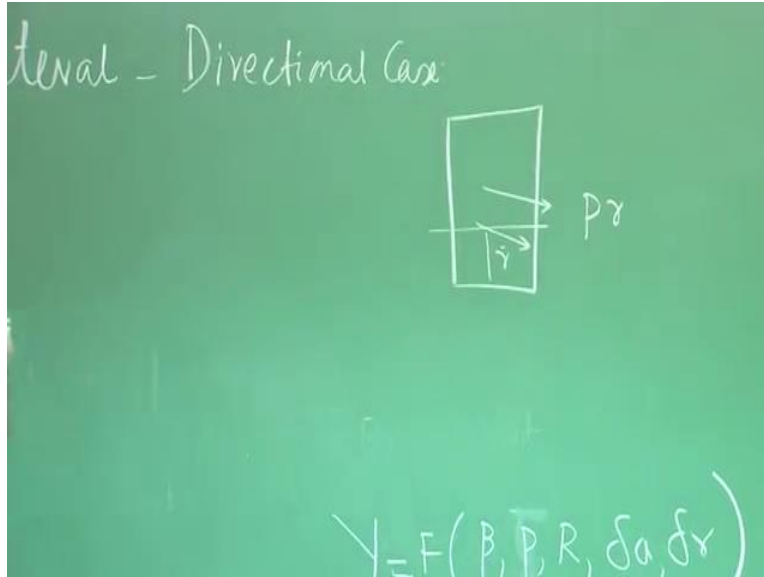 teral - Directional Case
pr
r
Y = F(β, P, R, δa, δr)